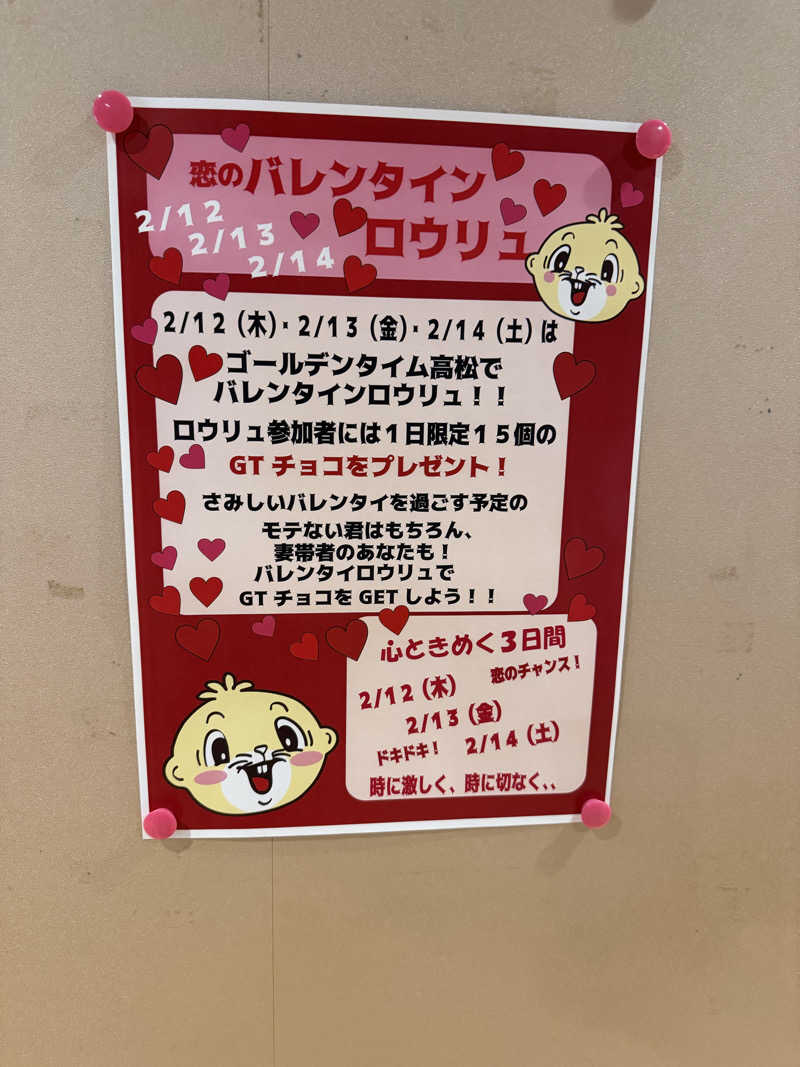 恋のバレンタイン
ロウリュ
2/12
2/13
2/14
2/12（木）・2/13（金）・2/14（土）は
ゴールデンタイム高松で
バレンタインロウリュ！！
ロウリュ参加者には１日限定１５個の
GTチョコをプレゼント！
さみしいバレンタイを過ごす予定の
モテない君はもちろん、
妻帯者のあなたも！
バレンタイロウリュで
GTチョコをGETしよう！！
心ときめく３日間
恋のチャンス！
2/12（木）
2/13（金）
ドキドキ！ 2/14（土）
時に激しく、時に切なく、、